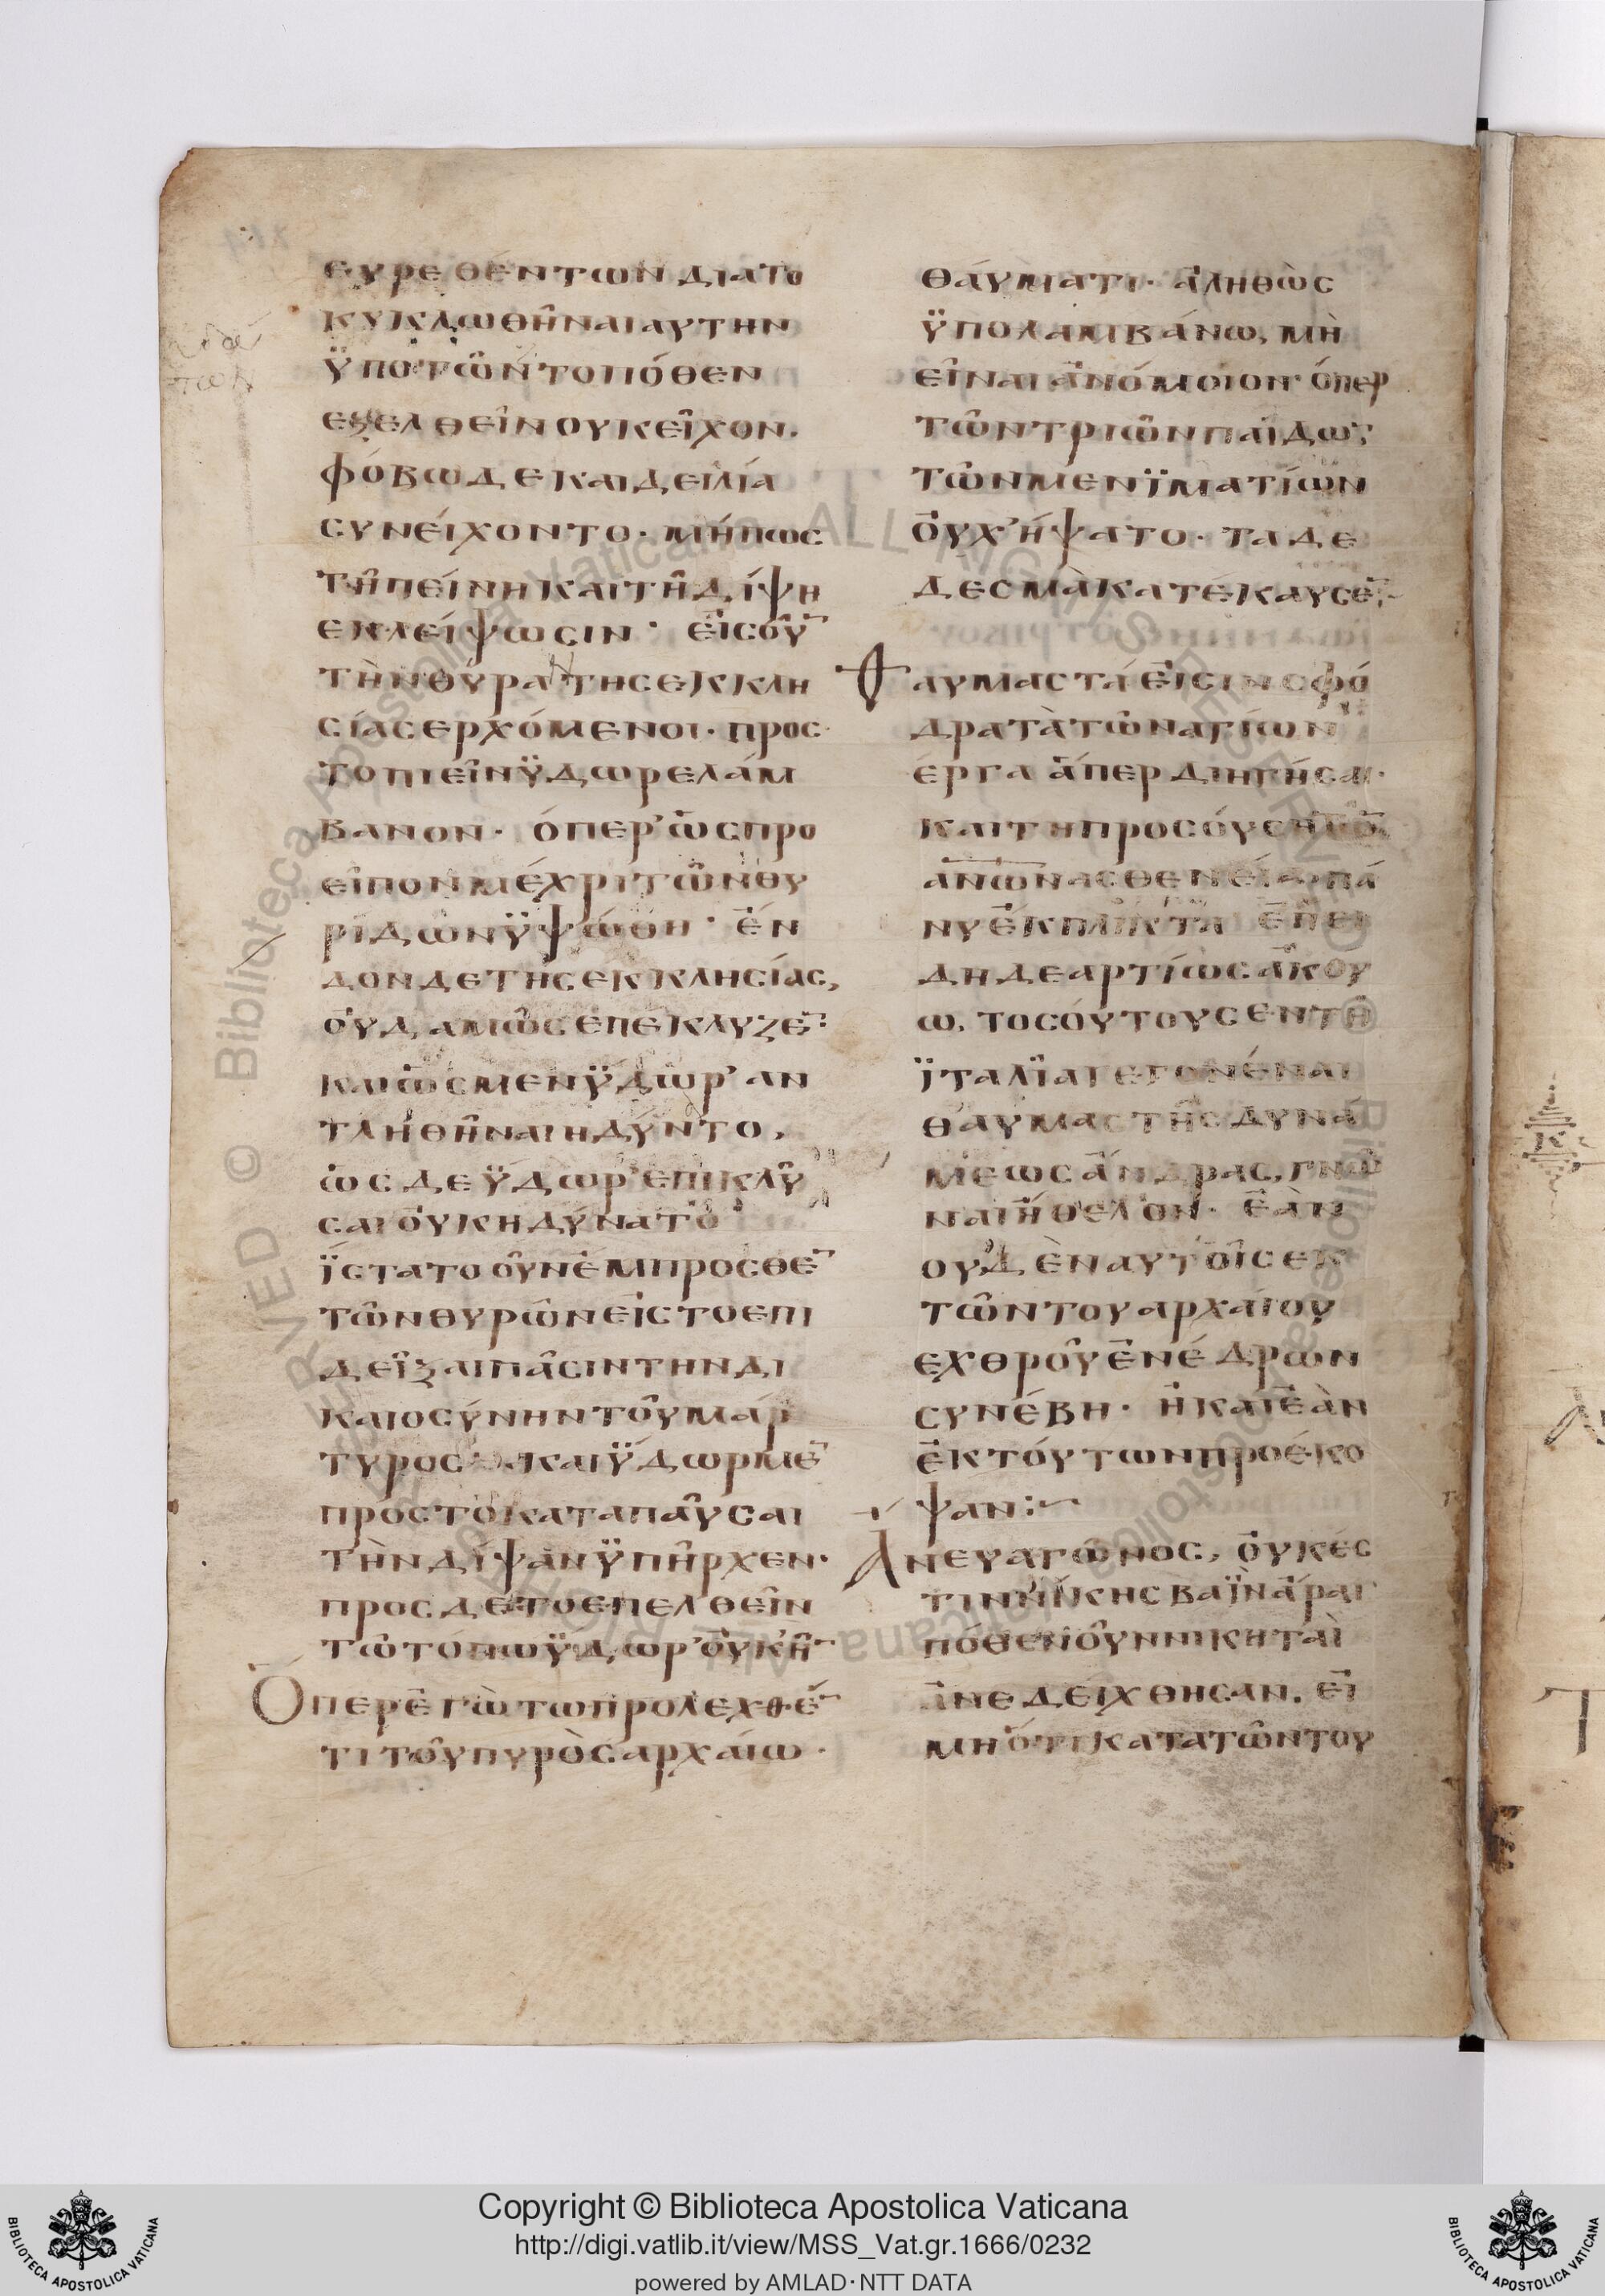 ευρεθέντων δια το
κυκλωθῆναι αυτην
ϋπο τῶν τοπόθεν
εξελθεῖν ουκ εἶχον.
φόβω δε και δειλία
συνείχοντο· μήπως
τῆ πείνη και τῆ δίψη
εκλείψωσιν· εἰς οὖ̅
τὴν θύραν της εκκλη
σίας ερχόμενοι· προς
το πιεῖν ϋδωρ ελάμ
βανον· ὅπερ ὡς προ
εῖπον μέχρι τῶν θυ
ρίδων ϋψώθη· ἔν
δον δε τῆς εκκλησίας,
οὐδαμῶς επεκλυζε̅:
και ὡς μεν ϋδωρ αν
τληθῆναι ηδύντο,
ὡς δε ϋδωρ επικλῦ
σαι οὐκ ηδύνατο
ϊστατο οὖν ἐμπροσθε̅
τῶν θυρῶν εἰς το επι
δεῖξαι πᾶσιν την δι
καιοσύνην τοῦ μάρ
τυρος· και ϋδωρ με̅
πρός το καταπαῦσαι
τὴν δίψαν ϋπῆρχεν·
προς δε το επελθεῖν
τῶ τόπω ϋδωρ οὐκ ῆ̅
Ὅπερ ἐγὼ τω προλεχθέ̅
τι τοῦ πυρὸς αρχαίω·
θάυματι· ἀληθὼς
ϋπολαμβάνω, μὴ
εῖναι ἀνόμοιον· ὅπερ
τῶν τριῶν παίδω̅
τῶν μεν ϊματίων
οὐχ ήψατο· τα δε
δεσμὰ κατέκαυσε̅:
Θαυμαστά εἰσιν σφό
δρα τὰ τῶν αγίων
έργα ἅπερ διηγήσαι·
και τη προσόυση τῶ̅
α̅ν̅ω̅ν ασθενεία πά
νυ ἐκπληκτα επει
δη δε αρτίως ἀκού
ω, τοσούτους εν τῆ
ϊταλία γεγονέναι
θαυμαστῆς δυνά
μεως ἄνδρας, γνῶ
ναι ήθελον· ἐὰν
ουδὲν αυτοῖς εκ
τῶν του αρχαίου
εχθροῦ ἐνέδρων
συνέβη· ἢ και ἐὰν
ἐκ τόυτων προέκο
ψαν:
Ανευ αγῶνος, οὐκ έσ
τιν νίκης βαϊν ἄραι
πόθεν οῦν νικηταὶ
ἀνεδείχθησαν. εἰ
μη ότι κατα τῶν του
Copyright © Biblioteca Apostolica Vaticana
http://digi.vatlib.it/view/MSS_Vat.gr.1666/0232
powered by AMLAD·NTT DATA
BIBLIOTECA APOSTOLICA VATICANA
BIBLIOTECA APOSTOLICA VATICANA